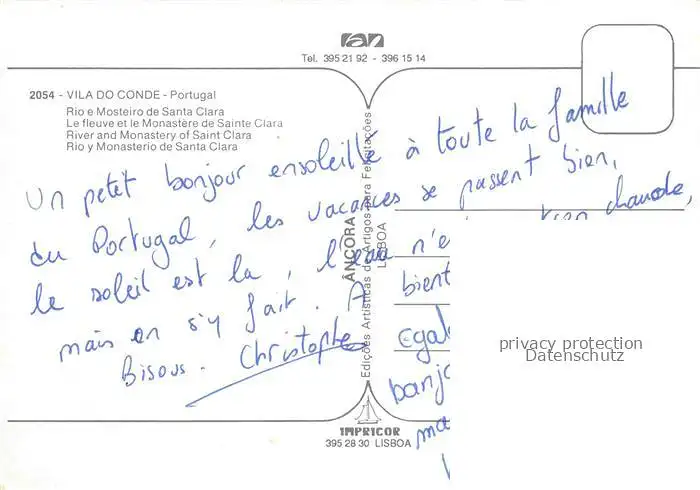 ran
Tel. 395 21 92 - 396 15 14
2054 - VILA DO CONDE - Portugal
Rio e Mosteiro de Santa Clara
Le fleuve et le Monastère de Sainte Clara
River and Monastery of Saint Clara
Rio y Monasterio de Santa Clara
Un petit bonjour ensoleillé à toute la famille
du Portugal, les vacances se passent bien,
le soleil est la, l'eau n'e chaude,
mais on s'y fait. A bient
Bisous. Christophe
egal
ma
ÂNCORA
Edições Artísticas de Artigos para Felicitações
LISBOA
IMPRICOR
395 28 30 LISBOA
privacy protection
Datenschutz